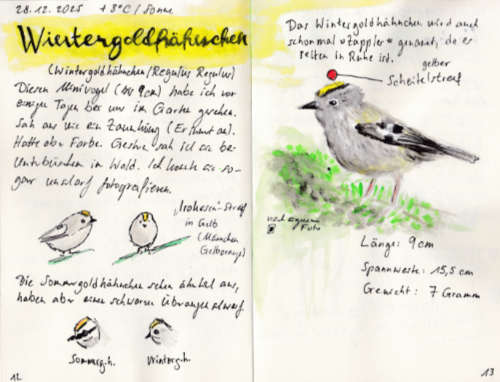 28.12.2025 +3°C/Sonne
Wintergoldhähnchen
(Wintergoldhähnchen/Regulus Regulus)
Diesen Minivogel (bis 9cm) habe ich vor
einigen Tagen bei uns im Garten gesehen.
Sah aus wie ein Zaunkönig
Hatte aber Farbe. Gestern sah ich sie
im Wald. Ich konnte sie so-
gar unscharf fotografieren.
"Irokesen"-Streif
in Gelb
(Männchen
Die Sommergoldhähnchen sehen ähnlich aus,
haben aber einen schwarzen
Sommergh.
Wintergh.
12
Das Wintergoldhähnchen wird auch
schonmal »Zappler« genannt, da es
selten in Ruhe ist.
gelber
Scheitelstreif
nach eigenem
Foto
Länge: 9cm
Spannweite: 15,5 cm
Gewicht: 7 Gramm
13